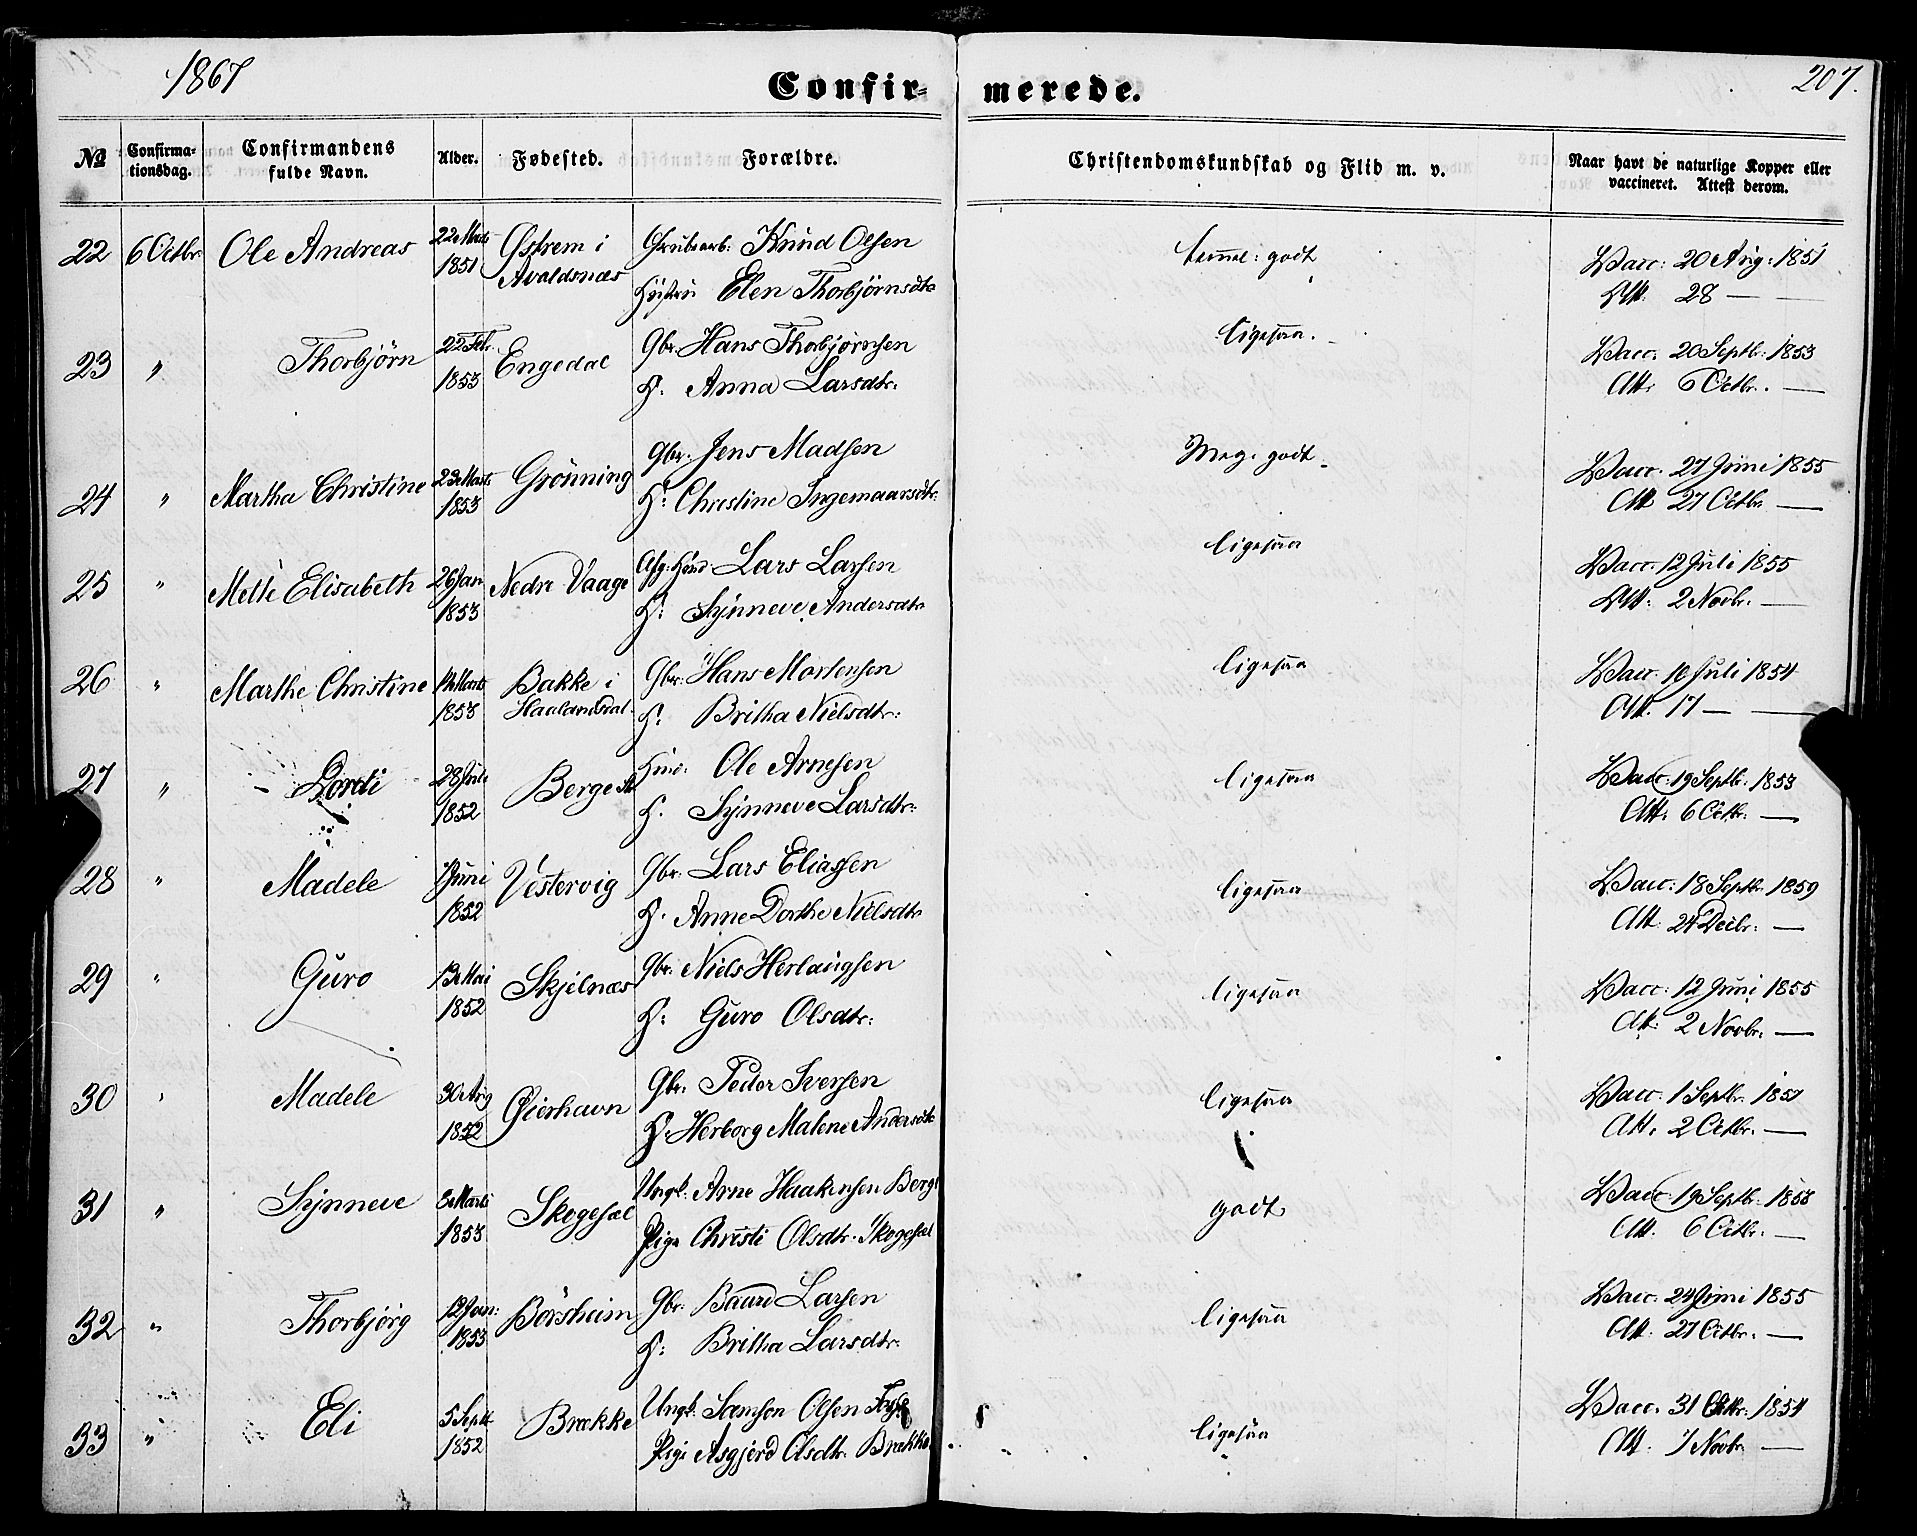 1867 Confirmerede. 207.
No Confirmationsdag. Confirmandens fulde Navn. Alder. Fødested. Forældre. Christendomskundskab og Flid m. v. Naar havt de naturlige Kopper eller vaccineret. Attest derom.
22 6 Octbr. Ole Andreas 22 Marts 1851 Østrem i Avaldsnæs Grubearb: Knud Olsen temmel: godt Vacc: 20 Aug: 1851
Hustru Elen Thorbjørnsdtr Att. 28 — —
23 " Thorbjörn 22 Febr. 1853 Engedal Gbr. Hans Thorbjørnsen ligesaa. Vacc. 20 Septb: 1853
H. Anna Larsdtr. Att. 6 Octbr. —
24 " Martha Christine 23 Marts 1853 Grönning Gbr. Jens Madsen Meg. godt Vacc. 27 Juni 1855
H. Christine Ingemaarsdtr. Att 27 Octbr —
25 " Mette Elisabeth 26 Jan 1853 Nedre Vaage Lars Larsen ligesaa Vacc. 12 Juli 1855
H. Synneve Andersdtr Att: 2 Novbr. —
26 " Marthe Christine 14 Marts 1853 Bakke i Haalandsdal. Gbr. Hans Mortensen ligesaa Vacc. 10 Juli 1854
H. Britha Nielsdtr: Att. 17 — —
27 " Dordi 28 Juli 1852 Berge Huusm. Ole Arnesen ligesaa Vacc. 19 Septb. 1853
H. Synneve Larsdtr: Att. 6 Octbr. —
28 " Madele 7 Juni 1852 Vestervig Gbr. Lars Eliassen ligesaa Vacc: 18 Septb. 1859
H. Anne Dorthe Nielsdtr Att. 24 Decbr. —
29 " Guro 13 Mai 1852 Skjelnæs Gbr. Niels Herlaugsen ligesaa Vacc: 12 Juni 1855
H: Guro Olsdtr: Att: 2 Novbr. —
30 " Madele 30 Aug 1852 Øierhavn Gbr: Peder Iversen ligesaa Vacc. 1 Septbr. 1857
H. Herborg Malene Andersdtr Att. 2 Octbr. —
31 " Synneve 8 Marts 1853 Skogesæl Ungk: Arne Haakensen Berge godt Vacc 19 Septb. 1853
Pige Christi Olsdtr. Skogesæl Att. 6 Octbr. —
32 " Thorbjörg 12 Jan: 1853 Börsheim Gbr: Baard Larsen ligesaa Vacc: 24 Juni 1855
H. Britha Larsdtr. Att. 27 Octbr. —
33 " Eli 5 Septb 1852 Brække Ungk: Samson Olsen ligesaa Vacc. 31 Octbr. 1854
Pige Asgjerd Olsdtr. Brække Att. 7 Novbr —